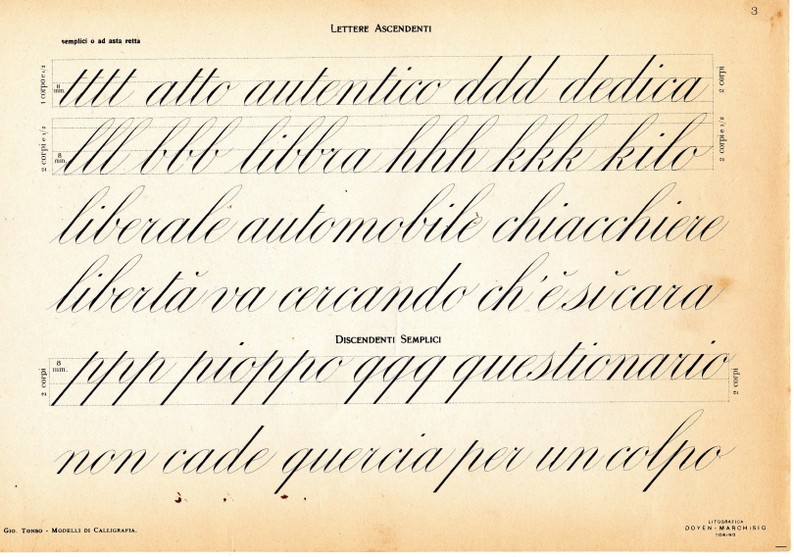 3
LETTERE ASCENDENTI
semplici o ad asta retta
1 corpo e 1/2
11 mm.
tttt atto autentico ddd dedica
2 corpi
2 corpi e 1/2
8 mm.
lll bbb libbra hhh kkk kilo
2 corpi e 1/2
liberale automobile chiacchiere
libertà va cercando ch'è sì cara
DISCENDENTI SEMPLICI
2 corpi
8 mm.
ppp pioppo qqq questionario
2 corpi
non cade quercia per un colpo
GIO. TONSO - MODELLI DI CALLIGRAFIA.
LITOGRAFICA
DOYEN-MARCHISIO
TORINO